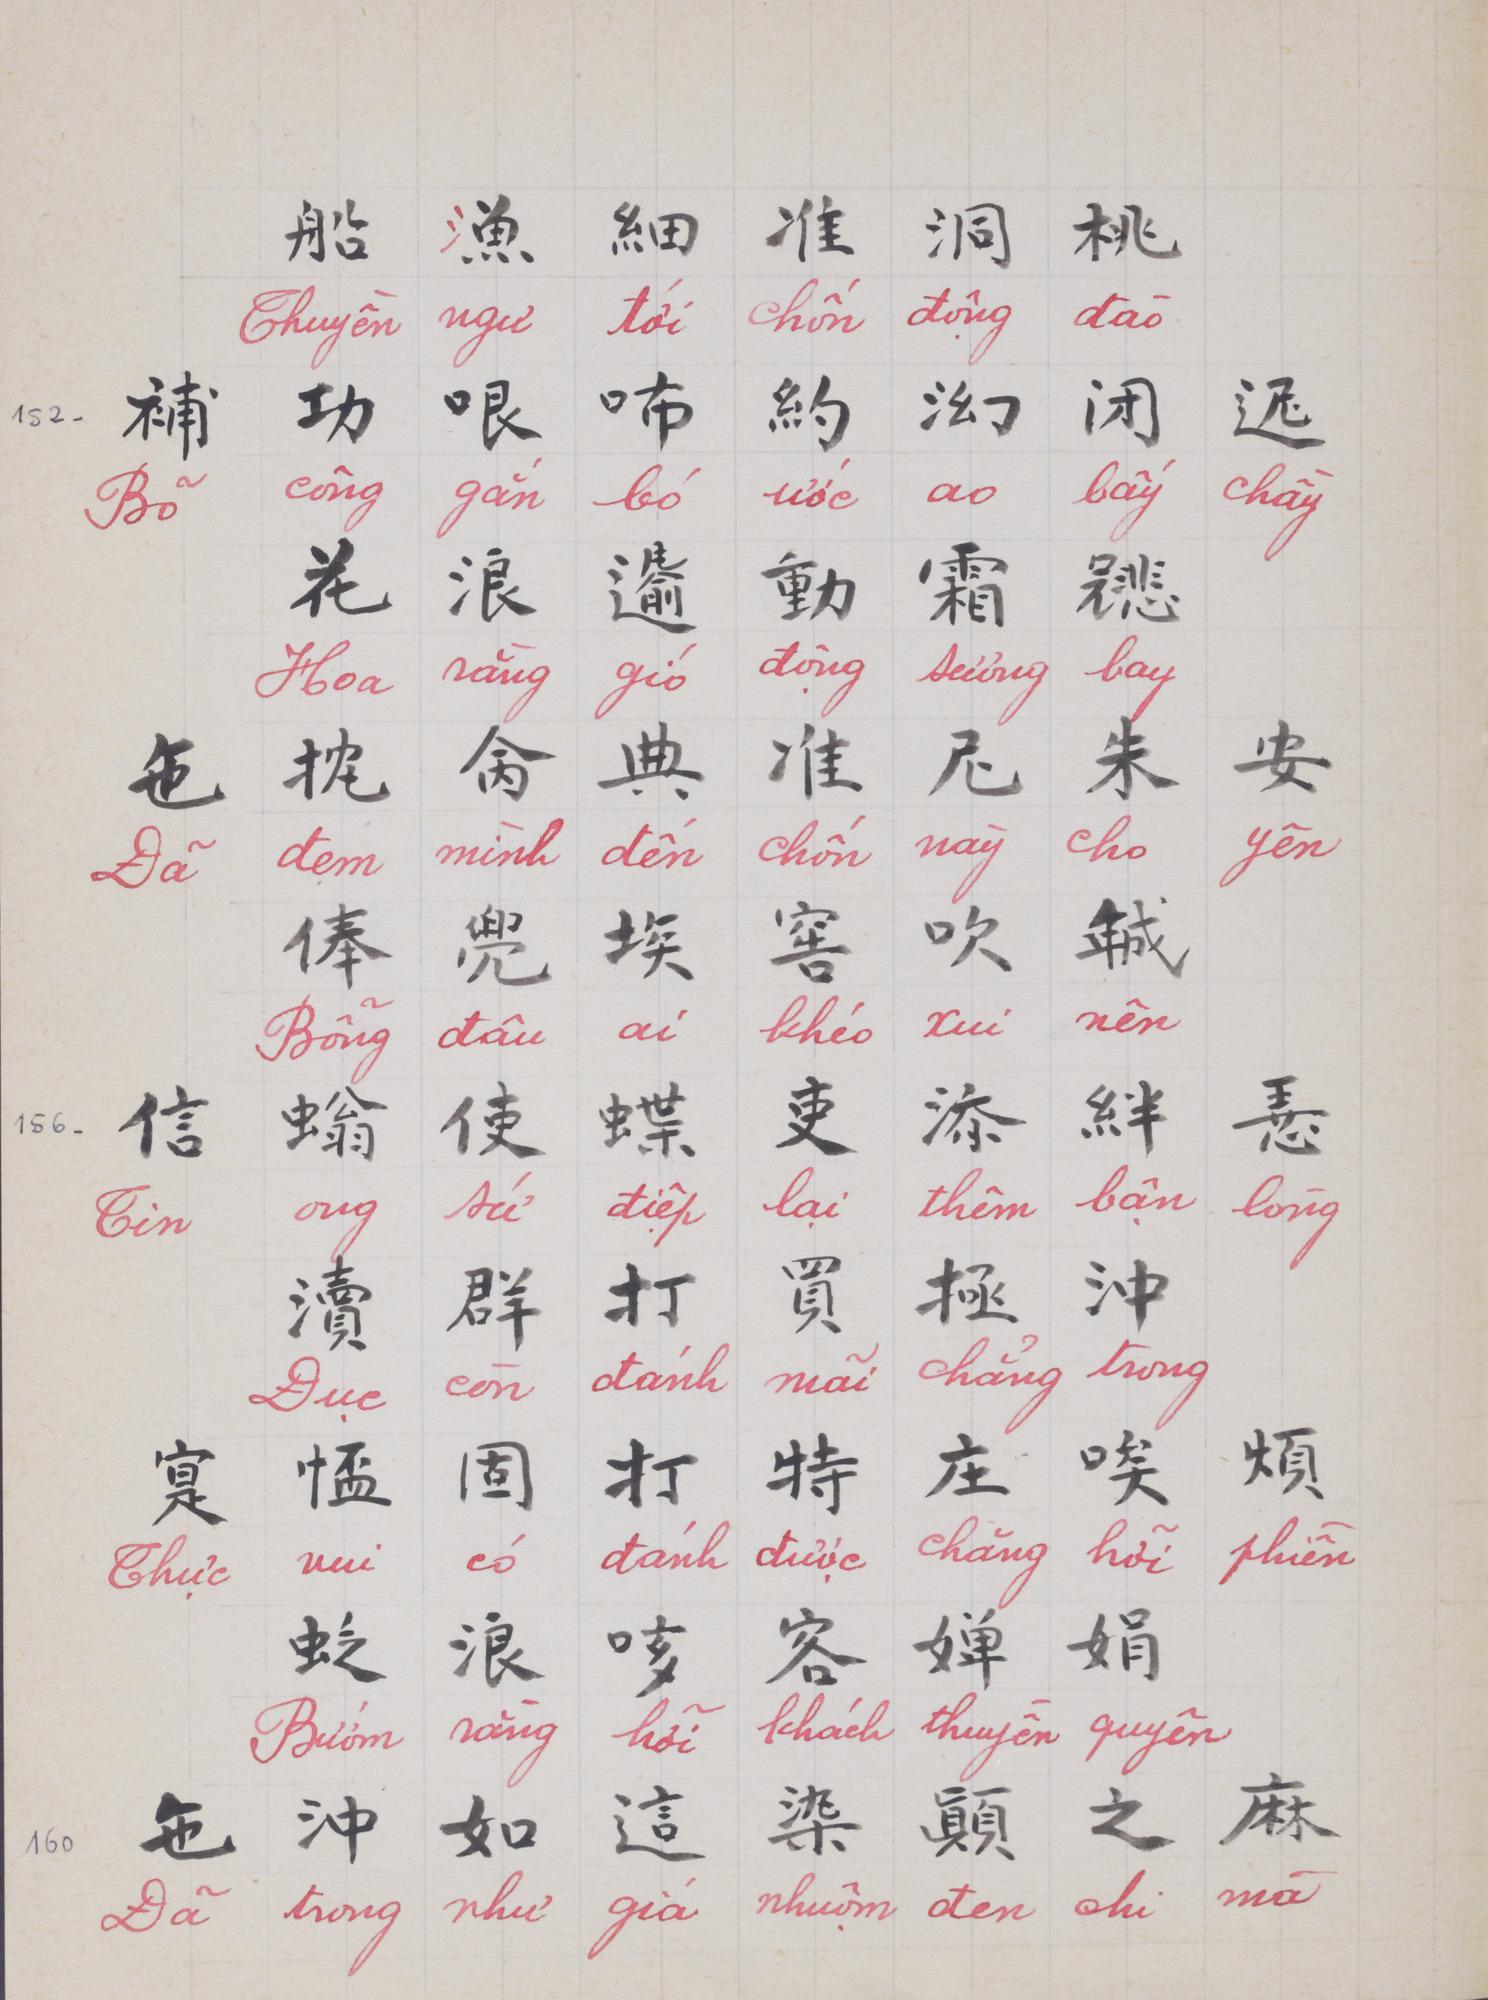 船 漁 細 准 洞 桃
Thuyền ngư tới chốn động đào
152- 補 功 哏 咘 約 泑 闭 迡
Bõ công gắn bó ước ao bấy chầy
花 浪 𨘗 動 霜 𱝩
Hoa rằng gió động sương bay
㐌 扰 𠋥 典 准 尼 朱 安
Đã đem mình đến chốn này cho yên
俸 兜 埃 窖 吹 𢧚
Bỗng đâu ai khéo xui nên
156- 信 螉 使 蝶 吏 添 絆 𢚸
Tin ong sứ điệp lại thêm bận lòng
瀆 群 打 買 拯 沖
Đục còn đánh mãi chẳng trong
寔 𢝙 固 打 特 庄 唉 煩
Thực vui có đánh được chăng hỡi phiền
𧊉 浪 咳 容 嬋 娟
Bướm rằng hỡi khách thuyền quyên
160 㐌 沖 如 這 染 顛 之 麻
Đã trong như giá nhuộm đen chi mà